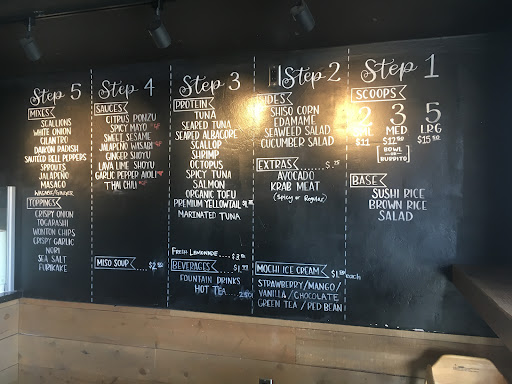 Step 5
MIXES
SCALLIONS
WHITE ONION
CILANTRO
DAIKON RADISH
SAUTÉED BELL PEPPERS
SPROUTS
JALAPEÑO
MASAGO
WASABI/GINGER
TOPPINGS
CRISPY ONION
TOGARASHI
WONTON CHIPS
CRISPY GARLIC
NORI
SEA SALT
FURIKAKE
Step 4
SAUCES
CITRUS PONZU
SPICY MAYO
SWEET SESAME
JALAPEÑO WASABI
GINGER SHOYU
LAVA LIME SHOYU
GARLIC PEPPER AIOLI
THAI CHILI
MISO SOUP
Step 3
PROTEIN
TUNA
SEARED TUNA
SEARED ALBACORE
SCALLOP
SHRIMP
OCTOPUS
SPICY TUNA
SALMON
ORGANIC TOFU
PREMIUM YELLOWTAIL
MARINATED TUNA
FRESH LEMONADE
BEVERAGES
FOUNTAIN DRINKS
HOT TEA
Step 2
SIDES
SHISO CORN
EDAMAME
SEAWEED SALAD
CUCUMBER SALAD
EXTRAS
AVOCADO
KRAB MEAT
(SPICY or REGULAR)
MOCHI ICE CREAM each
STRAWBERRY/MANGO/
VANILLA/CHOCOLATE
GREEN TEA/RED BEAN
Step 1
SCOOPS
2 3 5
MED LRG
$11
BOWL or BURRITO
BASE
SUSHI RICE
BROWN RICE
SALAD